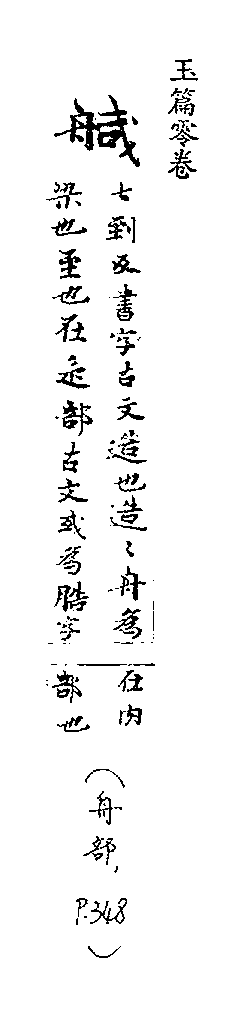 玉篇零卷
七到反書字古文造也造〻舟爲
梁也至也在辵部古文或爲字
在内
部也
(舟部,
P.348)